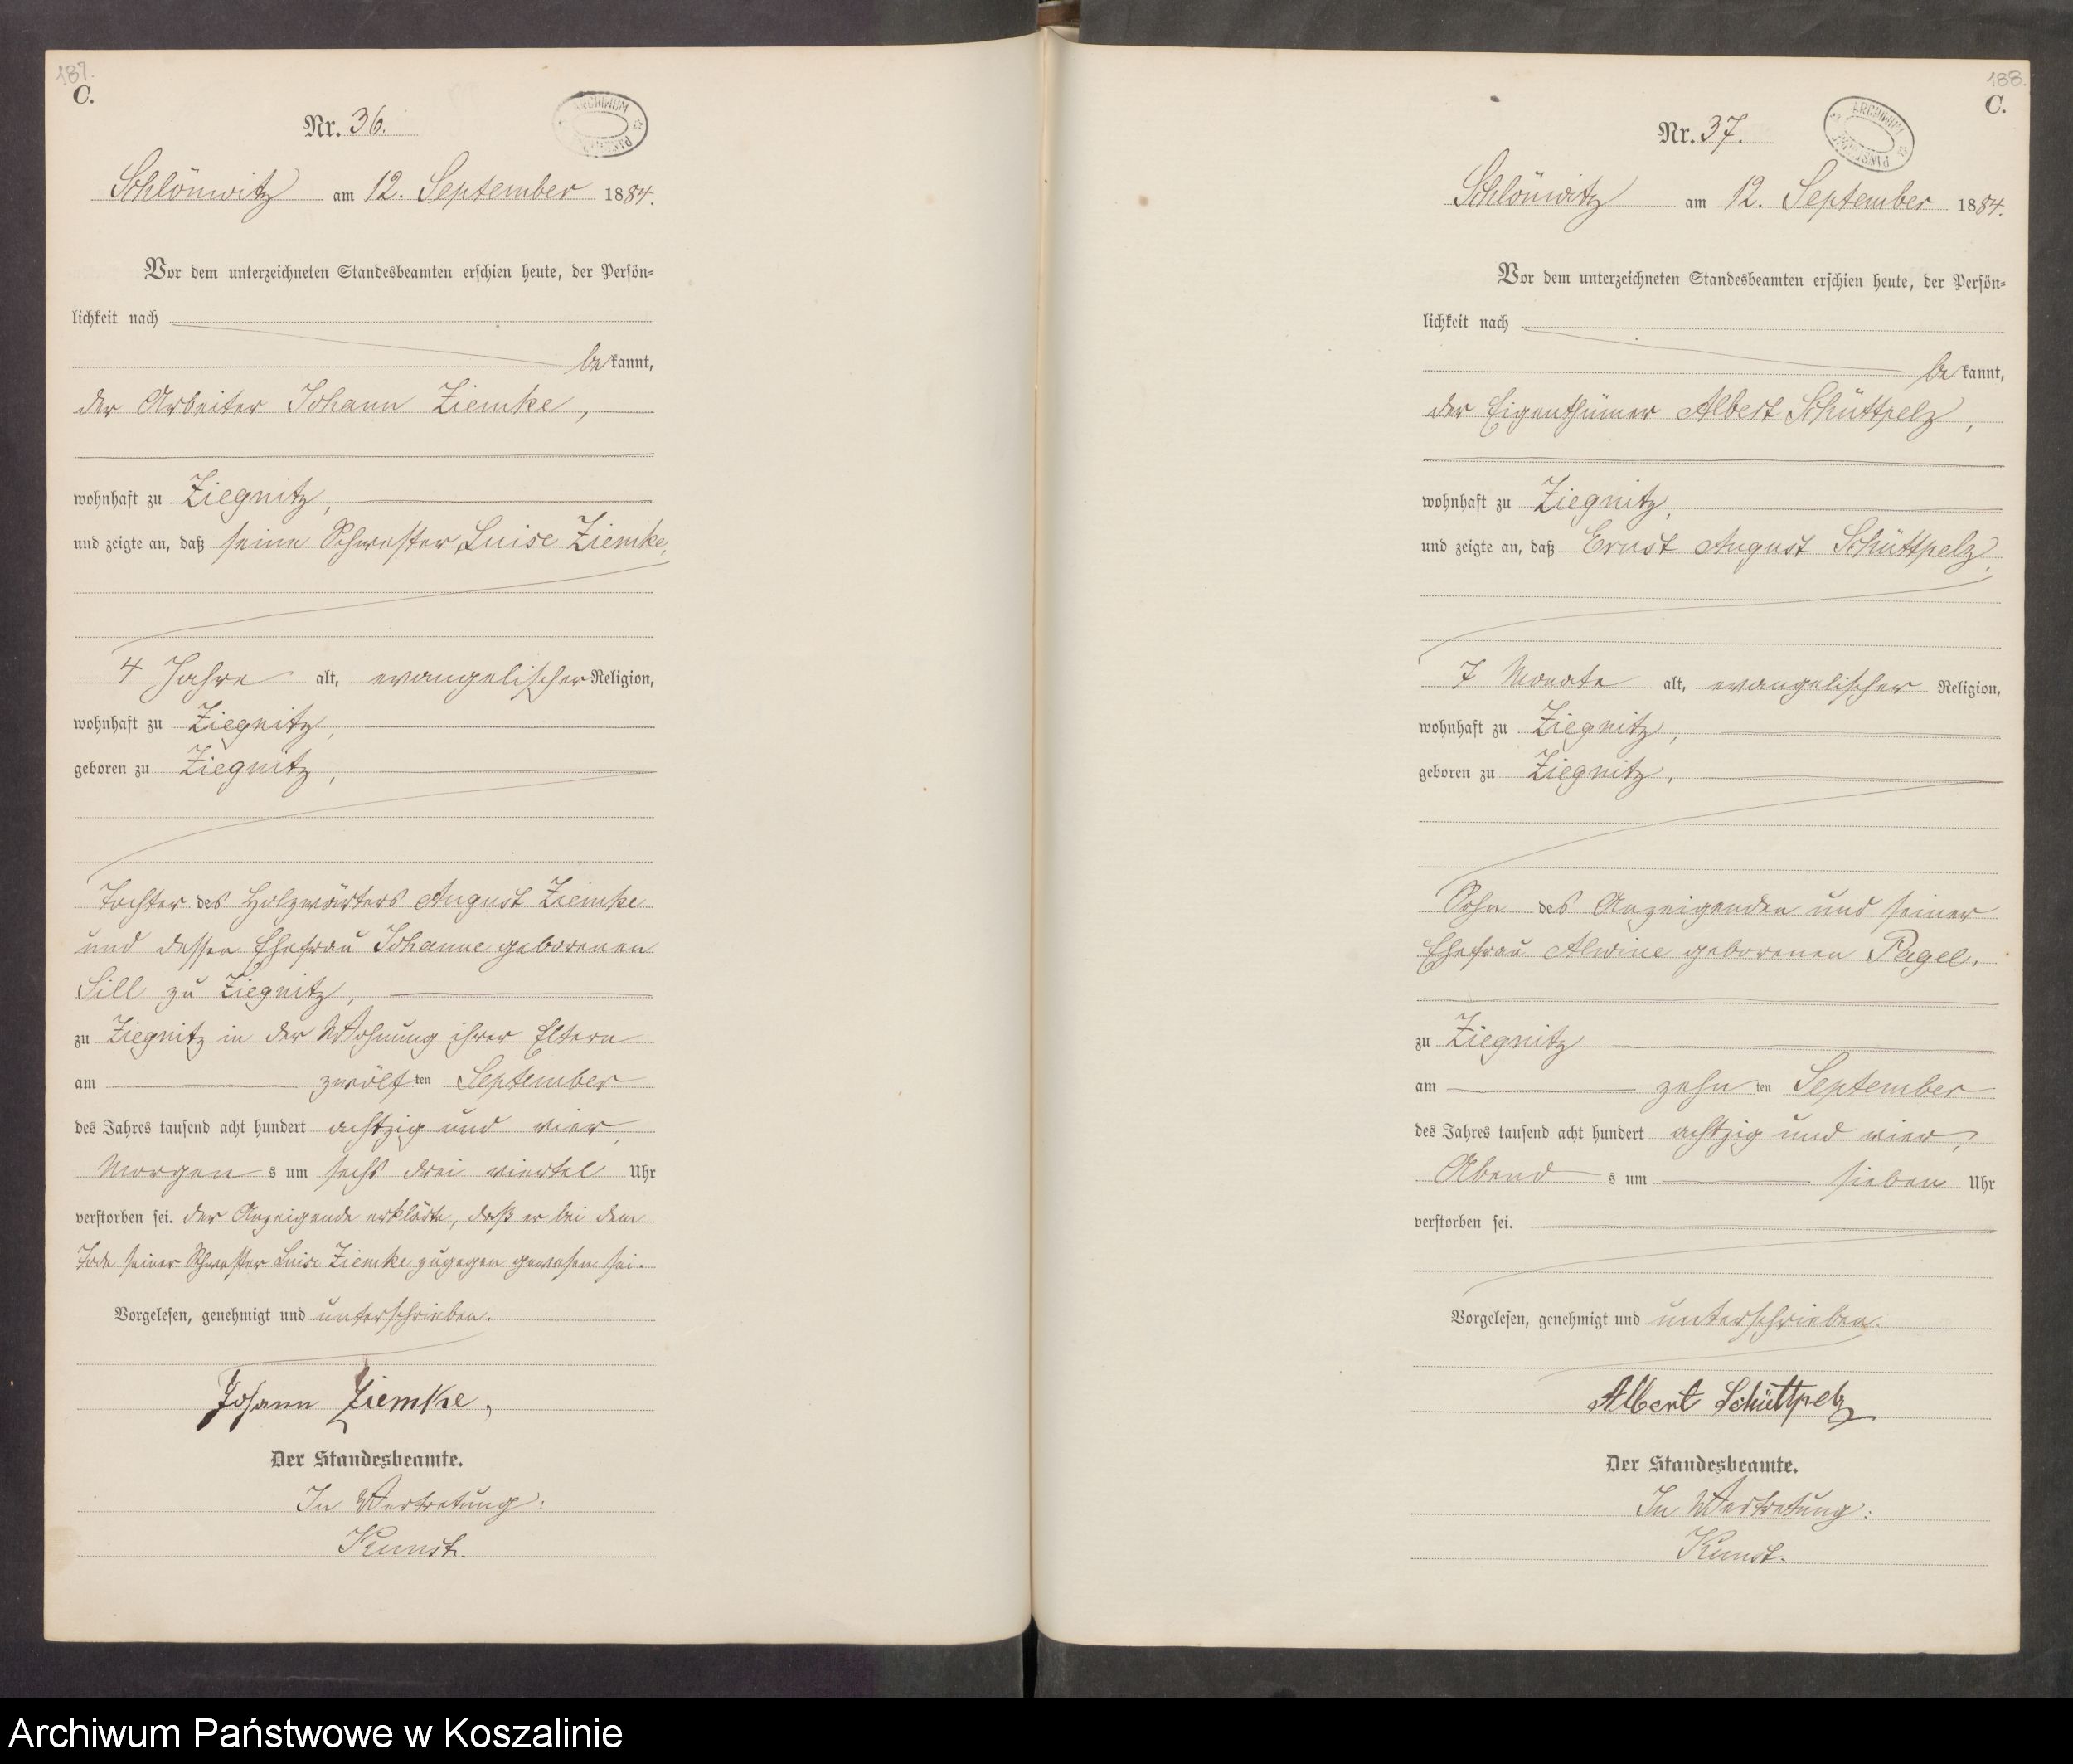 187.
C.
Nr. 36.
ARCHIWUM
PAŃSTWOWE
Schlönwitz am 12. September 1884.
Vor dem unterzeichneten Standesbeamten erschien heute, der Persön-
lichkeit nach
be kannt,
der Arbeiter Johann Ziemke,
wohnhaft zu Ziegnitz,
und zeigte an, daß seine Schwester Luise Ziemke,
4 Jahre alt, evangelischer Religion,
wohnhaft zu Ziegnitz,
geboren zu Ziegnitz,
Tochter des Holzwärters August Ziemke
und dessen Ehefrau Johanne geborenen
Sill zu Ziegnitz,
zu Ziegnitz in der Wohnung ihrer Eltern
am zwölf ten September
des Jahres tausend acht hundert achtzig und vier,
Morgen s um sechs drei viertel Uhr
verstorben sei. Der Anzeigende erklärte, daß er bei dem
Tode seiner Schwester Luise Ziemke zugegen gewesen sei.
Vorgelesen, genehmigt und unterschrieben.
Johann Ziemke,
Der Standesbeamte.
In Vertretung:
Kunst.
188.
C.
Nr. 37.
ARCHIWUM
PAŃSTWOWE
Schlönwitz am 12. September 1884.
Vor dem unterzeichneten Standesbeamten erschien heute, der Persön-
lichkeit nach
be kannt,
der Eigenthümer Albert Schüttpelz,
wohnhaft zu Ziegnitz,
und zeigte an, daß Ernst August Schüttpelz,
7 Monate alt, evangelischer Religion,
wohnhaft zu Ziegnitz,
geboren zu Ziegnitz,
Sohn des Anzeigenden und seiner
Ehefrau Alwine geborenen Pagel,
zu Ziegnitz
am zehn ten September
des Jahres tausend acht hundert achtzig und vier,
Abend s um sieben Uhr
verstorben sei.
Vorgelesen, genehmigt und unterschrieben.
Albert Schüttpelz
Der Standesbeamte.
In Vertretung:
Kunst.
Archiwum Państwowe w Koszalinie